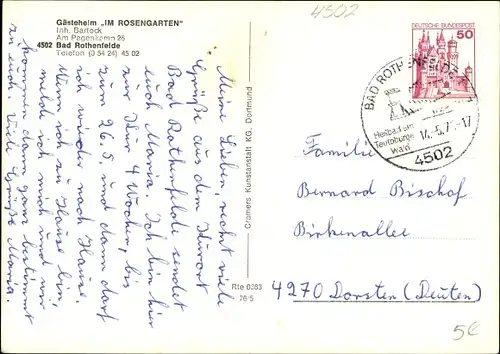 Gästeheim „IM ROSENGARTEN"
Inh. Bartock
Am Pagenkamp 26
4502 Bad Rothenfelde
Telefon (0 54 24) 45 02
4502
DEUTSCHE BUNDESPOST
50
BAD ROTHENFELDE
Heilbad im
Teutoburger
Wald
4502
Meine Lieben, recht viele
Grüße aus dem Kurort
Bad Rothenfelde sendet
euch Maria. Ich bin hier
zur Kur 4 Wochen, bis
zum 26.5 und dann darf
ich wieder nach Hause.
Wenn ich zu Hause bin,
melde ich mich und wir
kommen dann ganz bestimmt
zu euch. Viele Grüße
Maria.
Cramers Kunstanstalt KG, Dortmund
Rte 0363
76/5
Familie
Bernard Bischof
Birkenallee
4270 Dorsten (Deuten)
5€